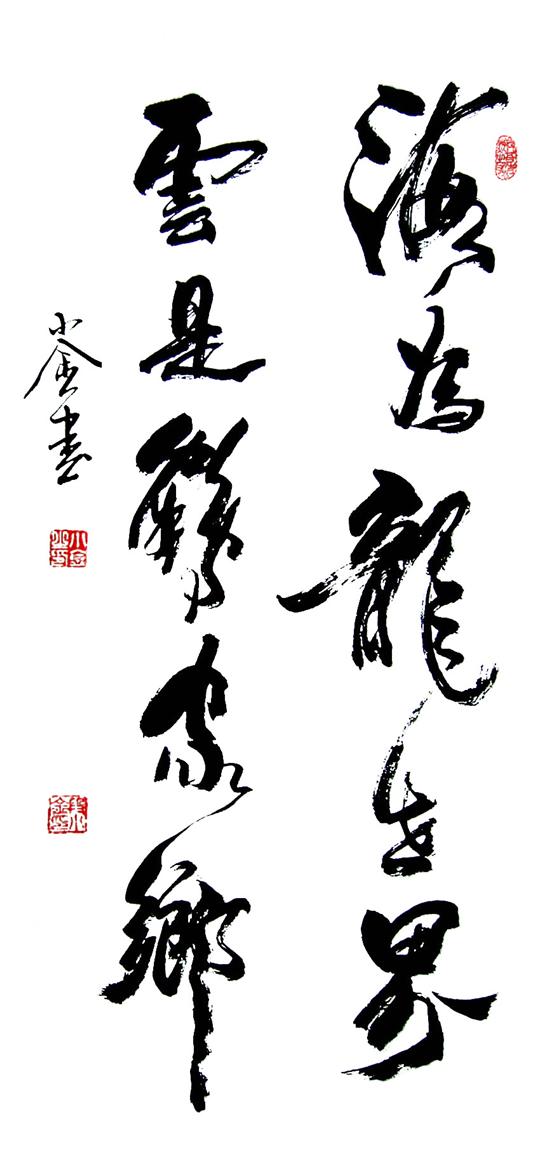 海為龍世界
雲是鶴家鄉
小金書